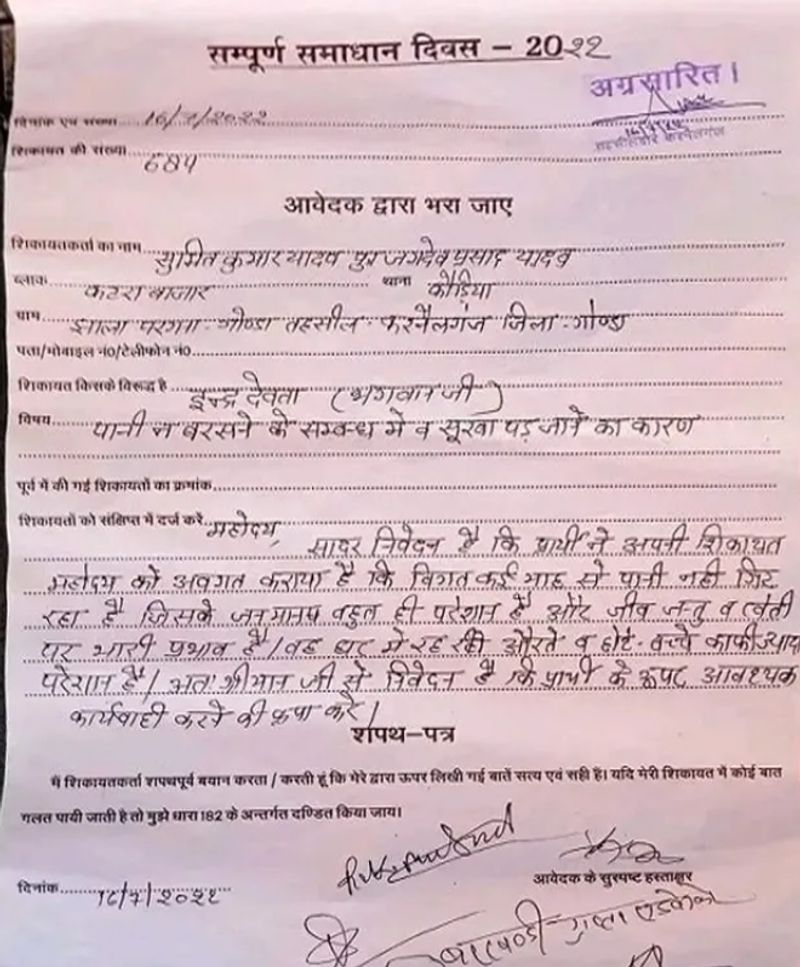 सम्पूर्ण समाधान दिवस – 2022
अग्रसारित।
दिनांक एवं संख्या 16/7/2022
तहसीलदार करनैलगंज
शिकायत की संख्या 684
आवेदक द्वारा भरा जाए
शिकायतकर्ता का नाम सुमित कुमार यादव पुत्र जगदेव प्रसाद यादव
ब्लाक कटरा बाजार थाना कौडिया
ग्राम झाला परगना-गोण्डा तहसील-करनैलगंज जिला-गोण्डा
पता/मोबाइल नं0/टेलीफोन नं0
शिकायत किसके विरूद्ध है इन्द्र देवता (भगवान जी)
विषय पानी न बरसने के सम्बन्ध मे व सूखा पड़ जाने का कारण
पूर्व में की गई शिकायतों का क्रमांक
शिकायतों को संक्षिप्त में दर्ज करें महोदय,
सादर निवेदन है कि प्रार्थी ने अपनी शिकायत
महोदय को अवगत कराया है कि विगत कई माह से पानी नही गिर
रहा है जिसके जनमानष बहुत ही परेशान है और जीव जन्तु व खेती
पर भारी प्रभाव है/वह घर मे रह रही औरते व छोटे-बच्चे काफी ज्यादा
परेशान है/अतः श्रीमान जी से निवेदन है कि प्रार्थी के ऊपर आवश्यक
कार्यवाही करने की कृपा करे/
शपथ-पत्र
मैं शिकायतकर्ता शपथपूर्व बयान करता / करती हूं कि मेरे द्वारा ऊपर लिखी गई बातें सत्य एवं सही हैं। यदि मेरी शिकायत में कोई बात
गलत पायी जाती है तो मुझे धारा 182 के अन्तर्गत दण्डित किया जाय।
आवेदक के सुस्पष्ट हस्ताक्षर
दिनांक 16/7/2022
गुप्ता एडवोकेट